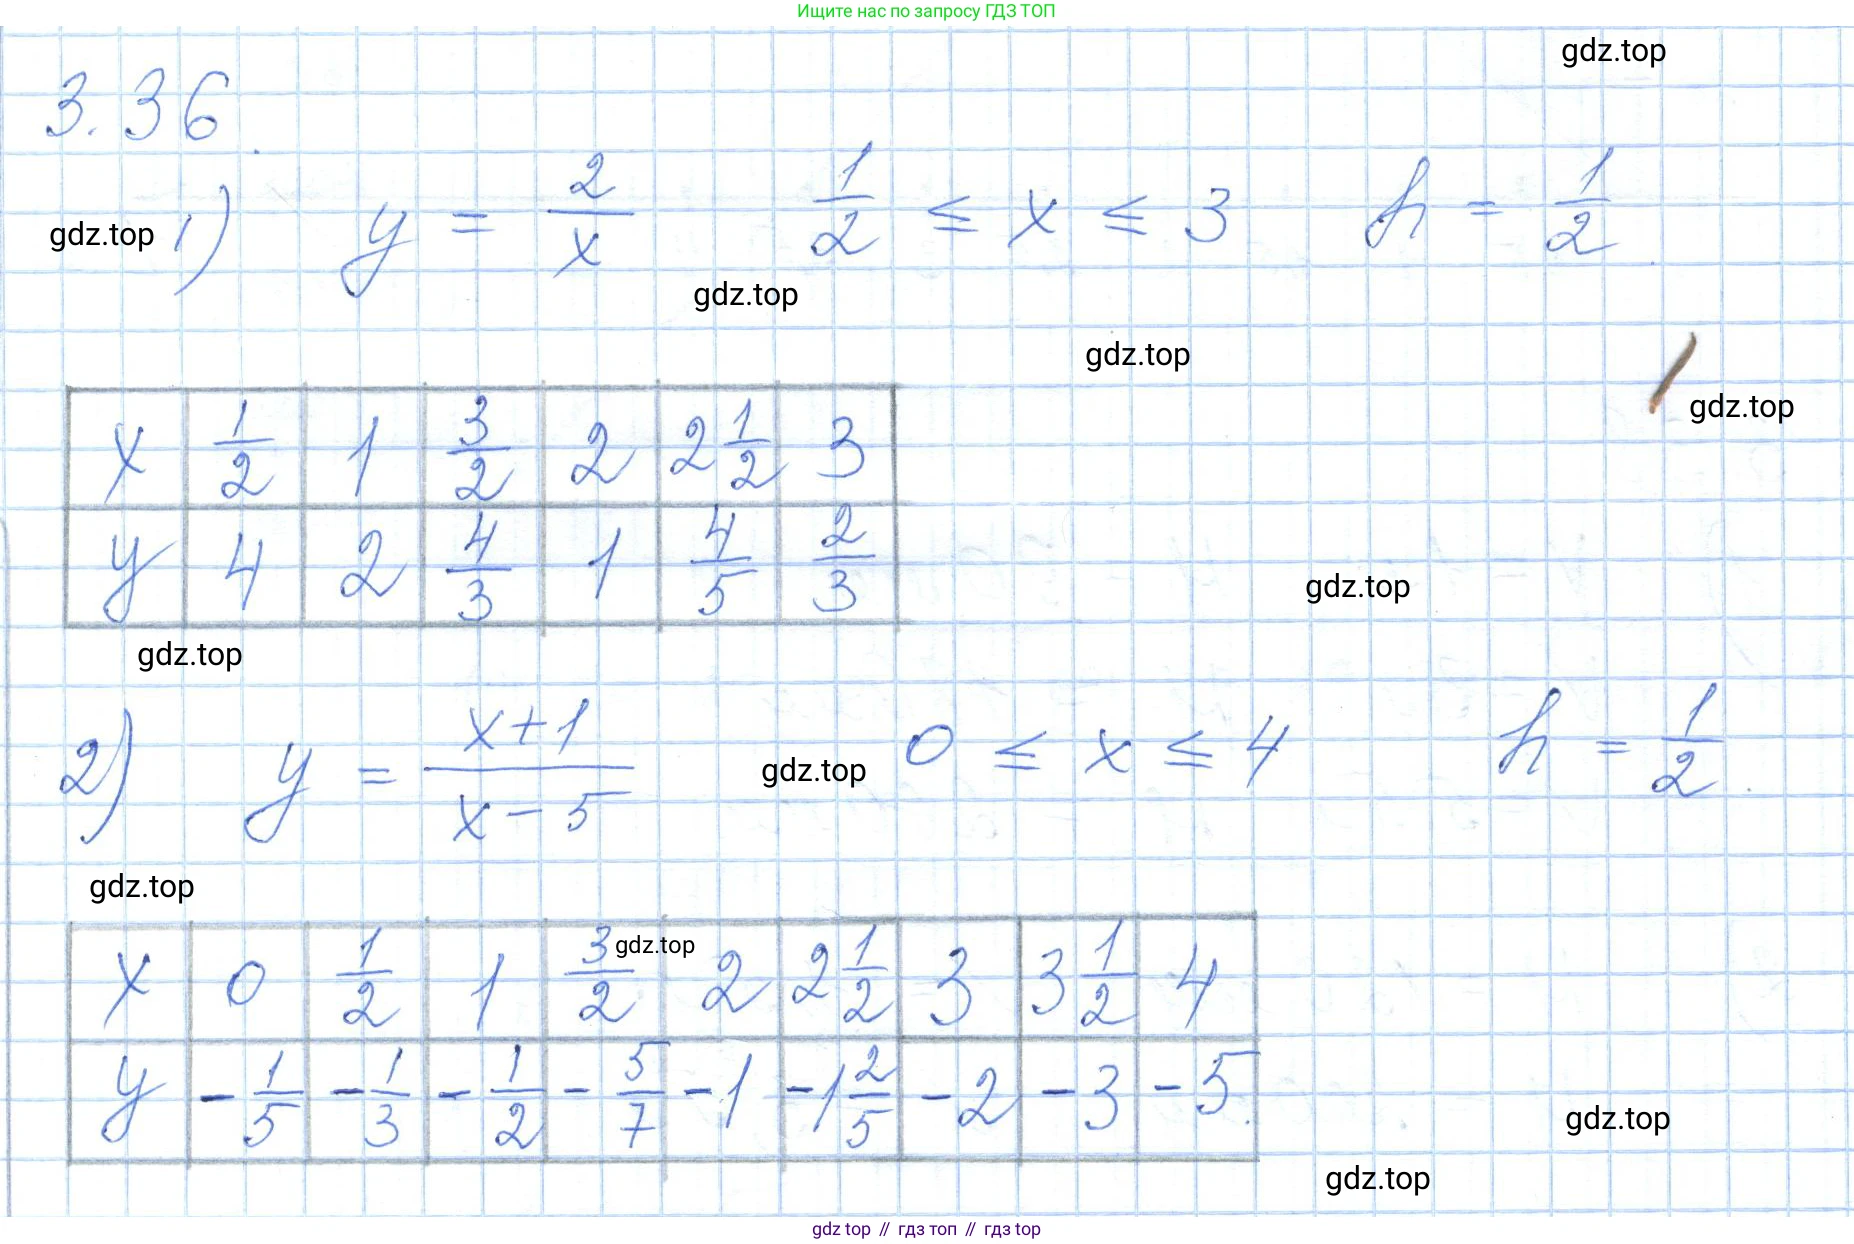 Ищите нас по запросу ГДЗ ТОП
gdz.top
3.36.
gdz.top 1) y = 2/x 1/2 ≤ x ≤ 3 h = 1/2.
gdz.top
gdz.top
gdz.top
x 1/2 1 3/2 2 2 1/2 3
y 4 2 4/3 1 4/5 2/3
gdz.top
gdz.top
2) y = (x+1)/(x-5) 0 ≤ x ≤ 4 h = 1/2.
gdz.top
gdz.top
x 0 1/2 1 3/2 2 2 1/2 3 3 1/2 4
gdz.top
y -1/5 -1/3 -1/2 -5/7 -1 -1 2/5 -2 -3 -5.
gdz.top
gdz.top
gdz top // гдз топ // гдз top